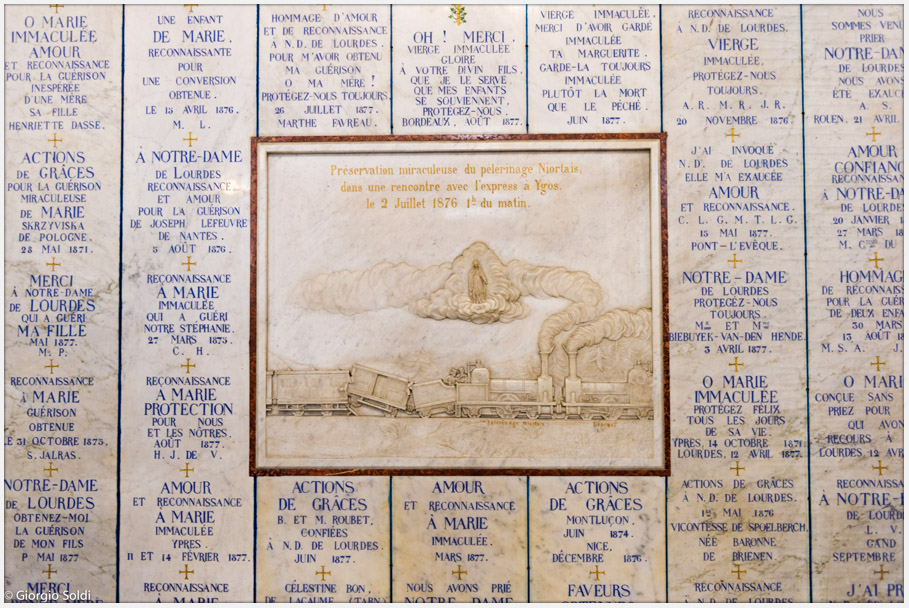 O MARIE
IMMACULÉE
AMOUR
ET RECONNAISSANCE
POUR LA GUÉRISON
INESPÉRÉE
D'UNE MÈRE
SA FILLE
HENRIETTE DASSE.
ACTIONS
DE GRÂCES
POUR LA GUÉRISON
MIRACULEUSE
DE MARIE
SKRZYVISKA
DE POLOGNE.
28 MAI 1871.
MERCI
À NOTRE-DAME
DE LOURDES
QUI A GUÉRI
MA FILLE
MAI 1877.
M. P.
RECONNAISSANCE
À MARIE
GUÉRISON
OBTENUE
LE 31 OCTOBRE 1875.
S. JALRAS.
NOTRE-DAME
DE LOURDES
OBTENEZ-MOI
LA GUÉRISON
DE MON FILS
P. MAI 1877
MERCI
UNE ENFANT
DE MARIE,
RECONNAISSANTE
POUR
UNE CONVERSION
OBTENUE.
LE 15 AVRIL 1876.
M. L.
À NOTRE-DAME
DE LOURDES
RECONNAISSANCE,
ET AMOUR
POUR LA GUÉRISON
DE JOSEPH LEFEUVRE
DE NANTES.
5 AOÛT 1876.
RECONNAISSANCE
À MARIE
IMMACULÉE
QUI A GUÉRI
NOTRE STÉPHANIE.
27 MARS 1875.
C. H.
RECONNAISSANCE
À MARIE
PROTECTION
POUR NOUS
ET LES NÔTRES.
AOÛT 1877.
H. J. DE V.
AMOUR
ET RECONNAISSANCE
À MARIE
IMMACULÉE
YPRES.
11 ET 14 FÉVRIER 1877.
RECONNAISSANCE
À MARIE
HOMMAGE D'AMOUR
ET DE RECONNAISSANCE
À N.D. DE LOURDES.
POUR M'AVOIR OBTENU
MA GUÉRISON
O MA MÈRE!
PROTÉGEZ-NOUS TOUJOURS.
26 JUILLET 1877.
MARTHE FAVREAU.
OH! MERCI,
VIERGE IMMACULÉE
GLOIRE
À VOTRE DIVIN FILS,
QUE JE LE SERVE,
QUE MES ENFANTS
SE SOUVIENNENT,
PROTÉGEZ-NOUS.
BORDEAUX, AOÛT 1877.
VIERGE IMMACULÉE,
MERCI D'AVOIR GARDÉ
IMMACULÉE
TA MARGUERITE.
GARDE-LA TOUJOURS
IMMACULÉE
PLUTÔT LA MORT
QUE LE PÉCHÉ.
JUIN 1877.
Préservation miraculeuse du pèlerinage Niortais,
dans une rencontre avec l'express à Ygos.
le 2 Juillet 1876 1h du matin.
Pèlerinage Niortais
Express
ACTIONS
DE GRÂCES
B. ET M. ROUBET,
CONFIÉES
À N.D. DE LOURDES.
JUIN 1877.
CÉLESTINE BON,
DE LACAUNE (TARN)
AMOUR
ET RECONNAISSANCE
À MARIE
IMMACULÉE.
MARS 1877.
NOUS AVONS PRIÉ
NOTRE DAME
ACTIONS
DE GRÂCES
MONTLUÇON,
JUIN 1874.
NICE,
DÉCEMBRE 1876.
FAVEURS
RECONNAISSANCE
À N.D. DE LOURDES.
VIERGE
IMMACULÉE,
PROTÉGEZ-NOUS
TOUJOURS.
A. R. M. R. J. R.
20 NOVEMBRE 1876.
J'AI INVOQUÉ
N. D. DE LOURDES
ELLE M'A EXAUCÉE
AMOUR
ET RECONNAISSANCE.
C. L. G. M. T. L. G.
15 MAI 1877.
PONT-L'ÉVÊQUE.
NOTRE-DAME
DE LOURDES
PROTÉGEZ-NOUS
TOUJOURS.
Mr ET Mme
BIEBUYEK-VAN-DEN HENDE.
3 AVRIL 1877.
O MARIE
IMMACULÉE
PROTÉGEZ FÉLIX
TOUS LES JOURS
DE SA VIE.
YPRES, 14 OCTOBRE 1871
LOURDES, 12 AVRIL 1877.
ACTIONS DE GRÂCES
À N.D. DE LOURDES.
12 MAI 1876
VICONTESSE DE SPOELBERCH,
NÉE BARONNE
DE BRIENEN.
RECONNAISSANCE
À N.D. DE LOURDES
NOUS
SOMMES VENU
PRIER
NOTRE-DA
DE LOURDES
NOUS AVONS
ÉTÉ EXAUC
A. S.
ROUEN. 21 AVRIL
AMOUR
CONFIANC
RECONNAISSAN
À NOTRE-DA
DE LOURDE
20 JANVIER 1
27 MARS 18
M. C DU
HOMMAG
DE RECONNAISS
POUR LA GUÉR
DE DEUX ENFA
30 MARS
13 AOÛT 18
M. S. A. J.
O MARI
CONÇUE SANS
PRIEZ POUR
QUI AVON
RECOURS À
LOURDES, 12 AVR
RECONNAISS
À NOTRE-D
DE LOURD
L. V.
GAND.
SEPTEMBRE
J'AI PR
© Giorgio Soldi